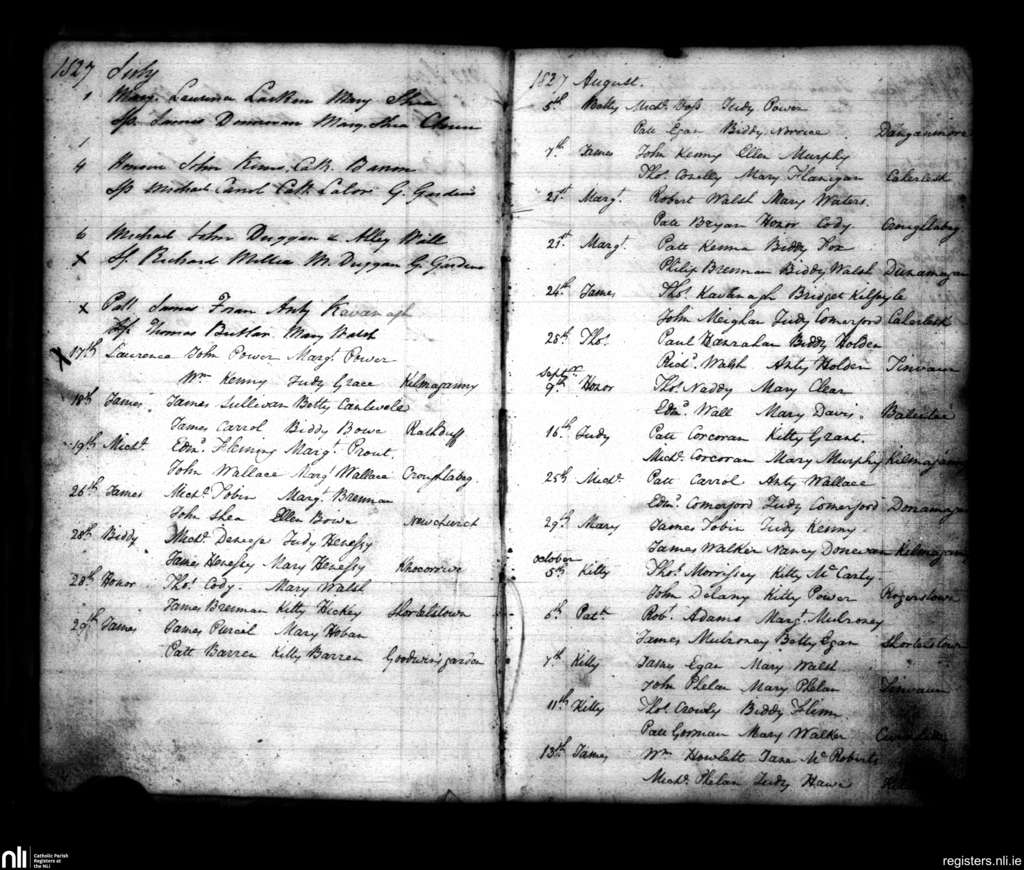 1827 July
1 Mary. Laurence Larken Mary Shea
Sp. James Donnovan Mary Shea Cloun
1
4 Honour John Kinna. Cath. Bannon
Sp Michael Carrol Cath Lalor G. Gardens
6 Michael John Duggan & Alley Wall
x Sp Richard M. Duggan G. Gardens
x Patt James Foran Anty Kavanagh
Sp. Thomas Butler. Mary Walsh
X 17th Laurence John Power Margt. Power
Wm Kenny Judy Grace Kilmaganny
18th James James Sullivan Betty Cantwell
James Carrol Biddy Bowe Rathduff
19th Michl. Edmd. Fleming Margt. Prout.
John Wallace Margt Wallace Croughlabeg.
26th James Michl. Tobin Margt Brennan
John Shea Ellen Bowe Newchurch
28th Biddy Michl. Judy Henessy
James Henessy Mary Henessy
28th Honor Thos. Cody. Mary Walsh
James Brennan Kitty Hickey Shortelstown
29th James James Purcel Mary Hoban
Patt Barren Kitty Barren Goodwinsgarden
1827 August.
5th Betty Michl. Judy Power
Patt Egan Biddy Danganmore
7th James John Kenny Ellen Murphy
Thos. Conelly Mary Flanigan Caherlesk
21st Margt. Robert Walsh Mary Waters.
Patt Bryan Honor Cody Croughlabeg
21st Margt. Patt Kenna Biddy Fox
Philip Brennan Biddy Walsh Dunamagan
24th James Thos. Kavanagh Bridget Kilfoyle
John Meighan Judy Comerford Caherlesk
25th Thos. Paul Hanrahan Biddy Holden
Richd. Walsh Anty Holden Tinvaun
Septr.
9th Honor Thos Naddy Mary Clear
Edmd. Wall Mary Davis.
16th Judy Patt Corcoran Kitty Grant.
Michl. Corcoran Mary Murphy Kilmaganny
25th Michl. Patt Carrol Anty Wallace
Edmd. Comerford Judy Comerford Donamagan
29th Mary James Tobin Judy Kenny
James Walker Nancy Donevan Kilmaganny
October
5th Kitty Thos. Morrissey Kitty McCarty
John Delany Kitty Power Rogerstown
6th Patk. Robt. Adams Margt. Mulroney
James Mulroney Betty Egan Shortelstown
7th Kitty James Egan Mary Walsh
John Phelan Mary Phelan Tinvaun
11th Kitty Thos. Crowly Biddy Flinn
Patt Gorman Mary Walker
13th James Wm Howlett Jane McRoberts
Michl. Phelan Judy Hawe
nli Catholic Parish
Registers at
the NLI
registers.nli.ie